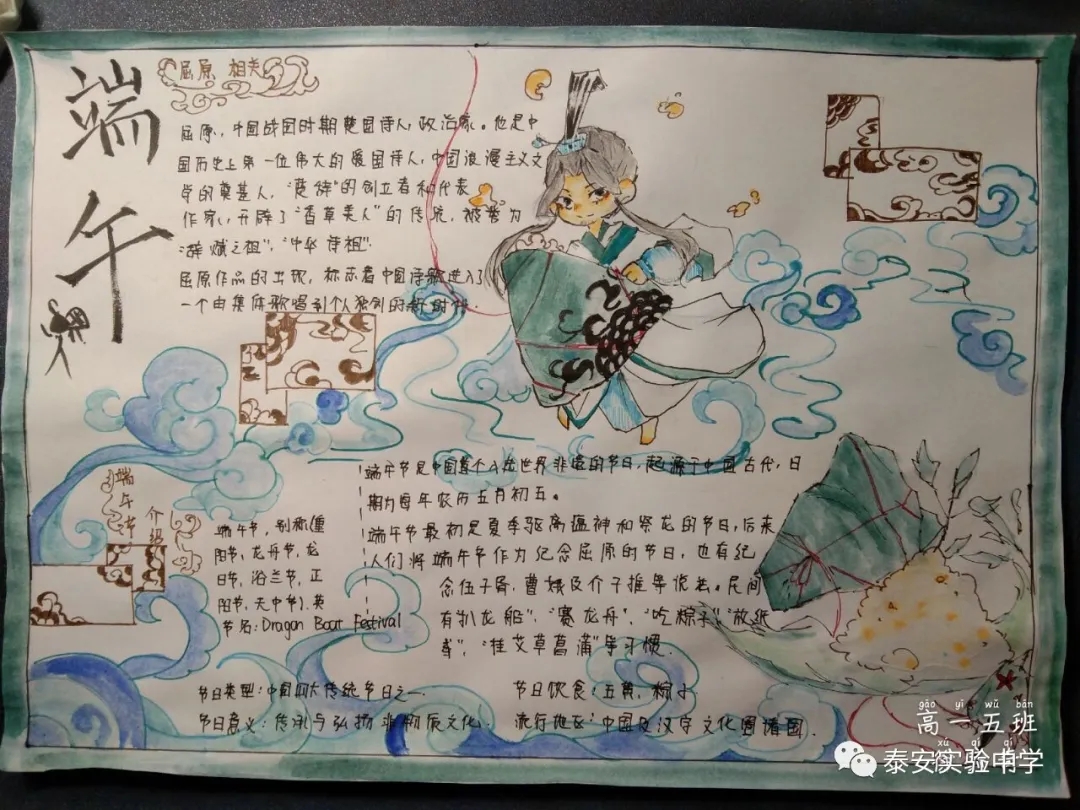 端午
屈原 相关
屈原，中国战国时期楚国诗人，政治家。他是中
国历史上第一位伟大的爱国诗人，中国浪漫主义文
学的奠基人，“楚辞”的创立者和代表
作家，开辟了“香草美人”的传统，被誉为
“辞赋之祖”，“中华诗祖”.
屈原作品的出现，标志着中国诗歌进入了
一个由集体歌唱到个人独创的新时代.
端午节介绍
端午节，别称（重
阳节，龙舟节，龙
日节，浴兰节，正
阳节，天中节），英
节名：Dragon Boat Festival
端午节是中国首个入选世界非遗的节日，起源于中国古代，日
期为每年农历五月初五。
端午节最初是夏季驱离瘟神和祭龙的节日，后来
人们将端午节作为纪念屈原的节日，也有纪
念伍子胥，曹娥及介子推等说法。民间
有“扒龙船”，“赛龙舟”，“吃粽子”，“放纸
鸢”，“挂艾草菖蒲”等习惯.
节日类型：中国四大传统节日之一
节日意义：传承与弘扬非物质文化.
节日饮食：五黄，粽子
流行地区：中国及汉字文化圈诸国.
gāo yī wǔ bān
高一五班
泰安实验中学